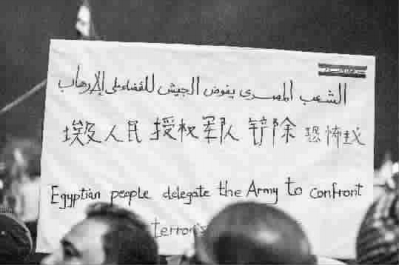 الشعب المصرى يفوض الجيش للقضاء على الإرهاب
埃及人民 授权 军队 铲除 恐怖
Egyptian people delegate the Army to confront
terroris